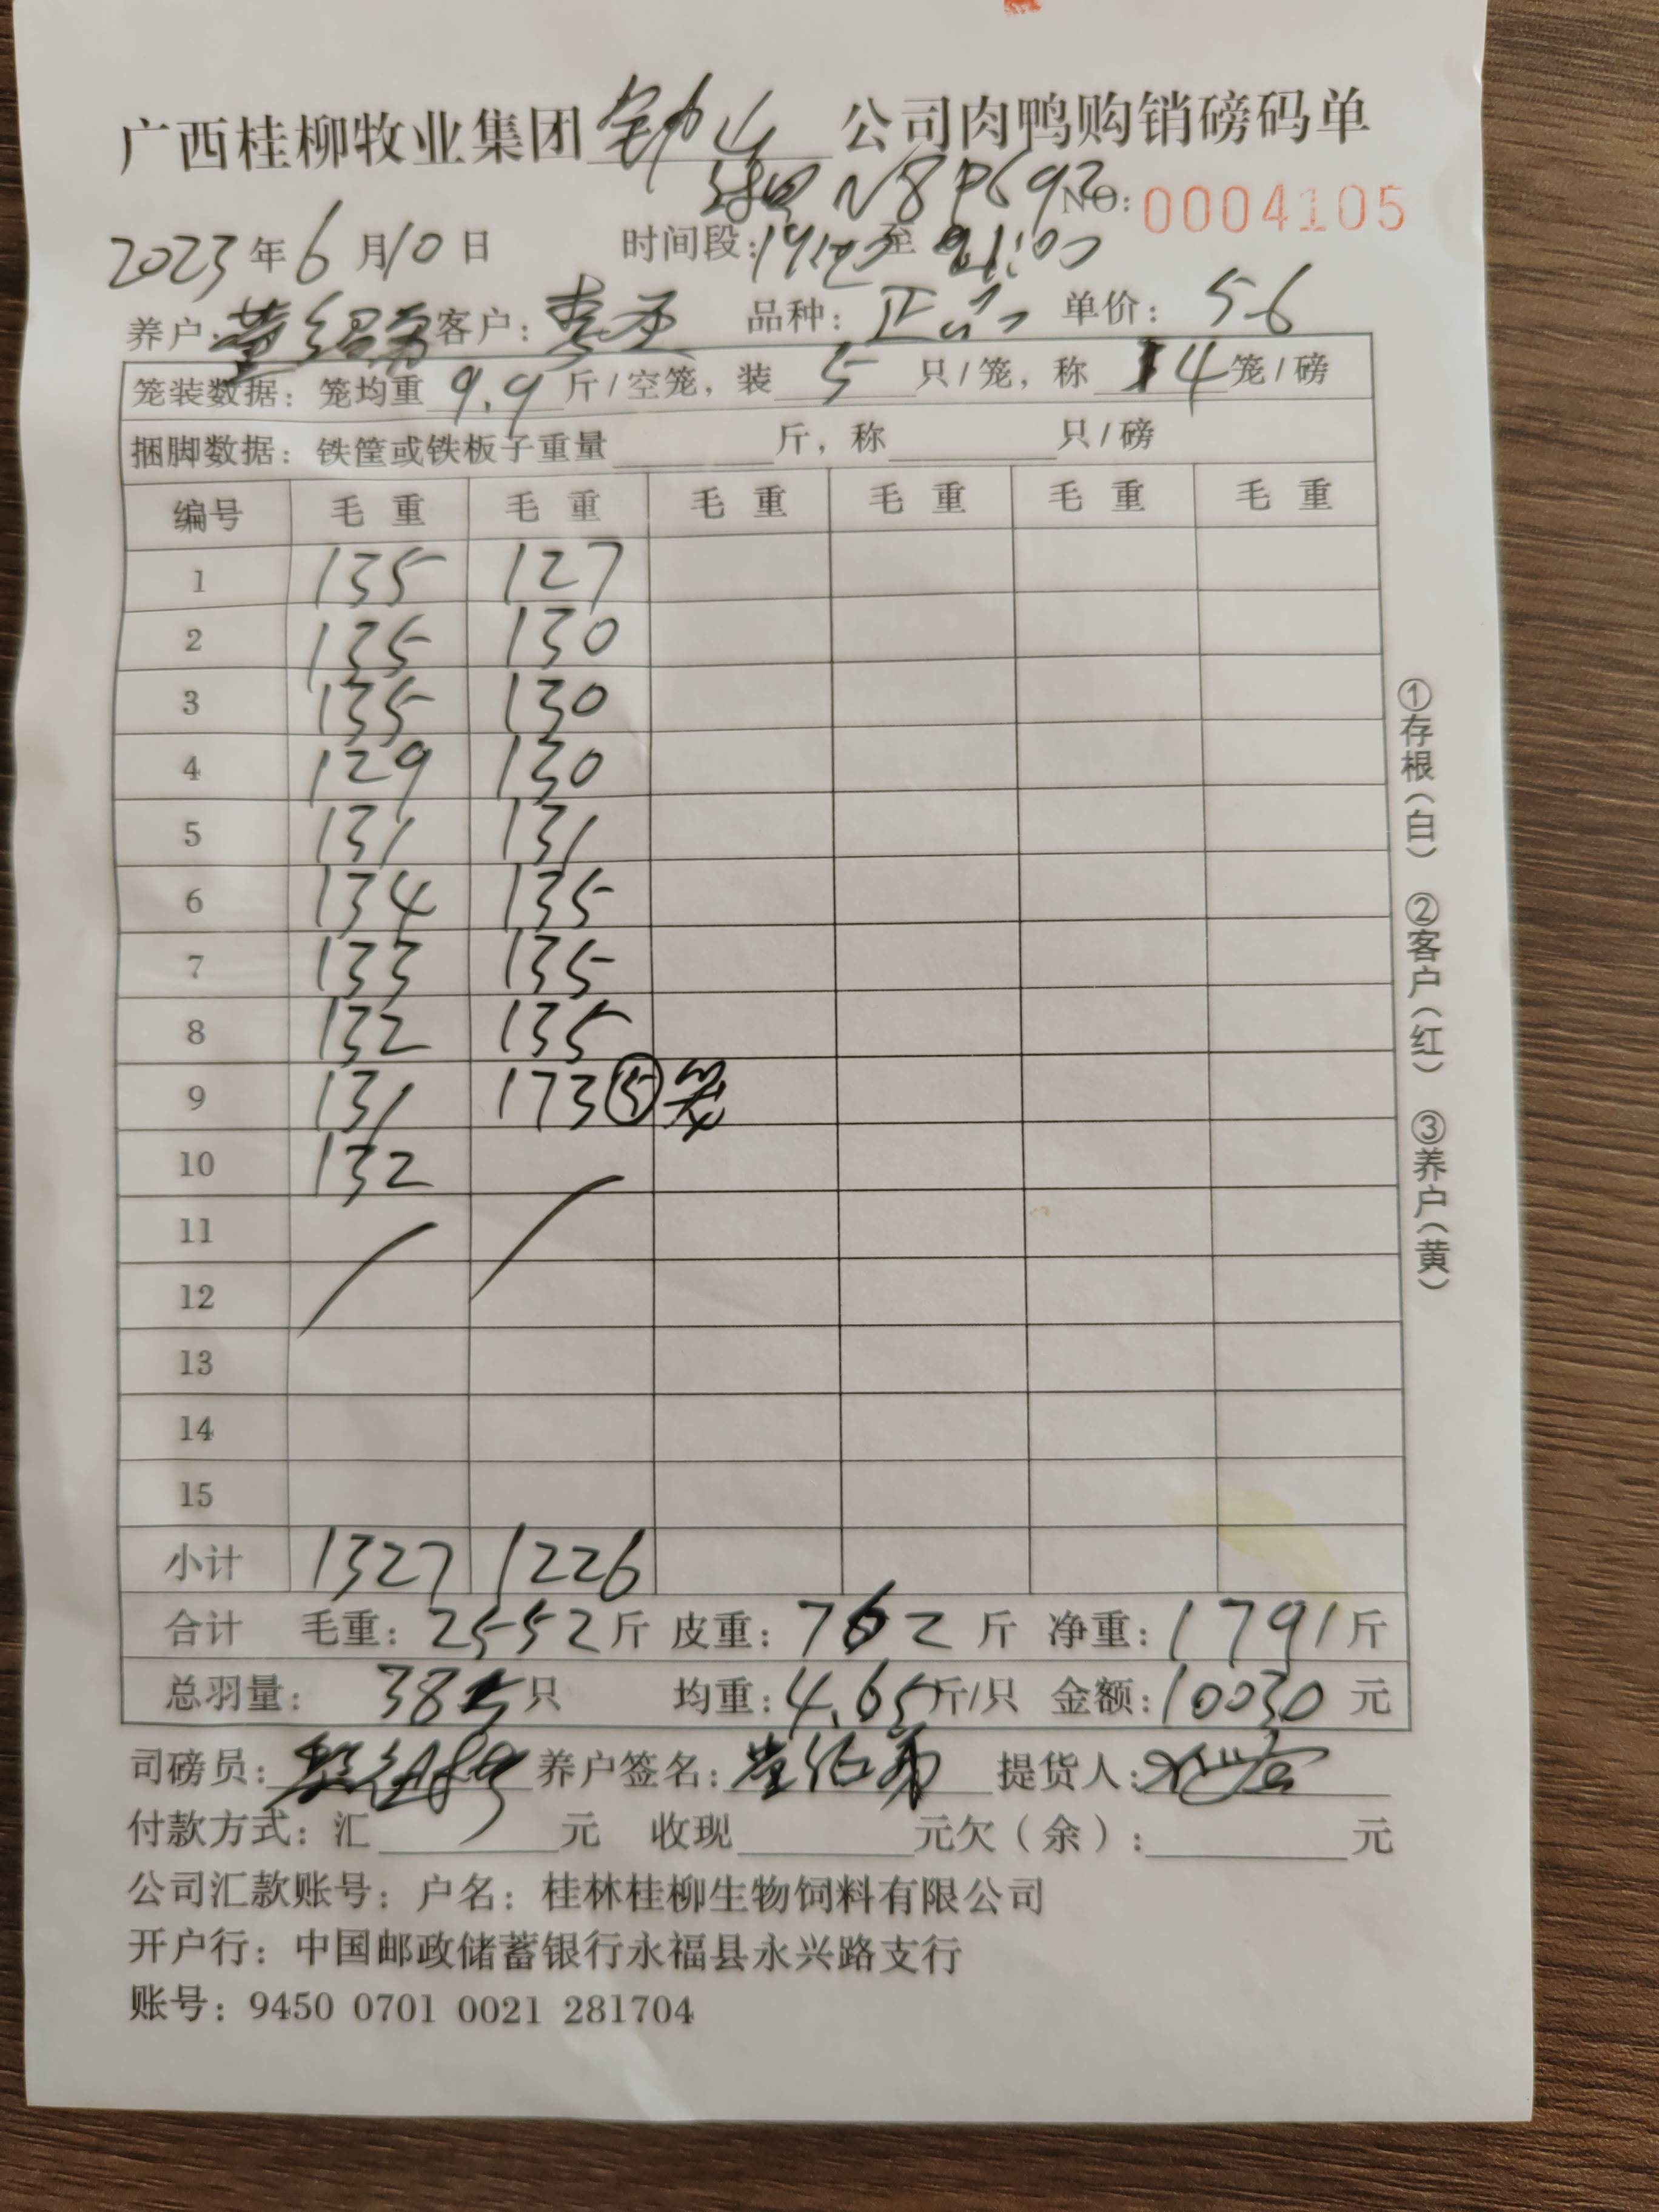 广西桂柳牧业集团钟山公司肉鸭购销磅码单
N8P692
NO:0004105
2023年6月10日 时间段: 至
养户: 客户: 品种: 单价:5.6
笼装数据:笼均重9.9斤/空笼,装5只/笼,称4笼/磅
捆脚数据:铁筐或铁板子重量 斤,称 只/磅
编号 毛重 毛重 毛重 毛重 毛重 毛重
1 135 127
2 135 130
3 135 130
4 129 130
5 131 131
6 134 135
7 133 135
8 132 135
9 131 173 ⑤笼
10 132
11
12
13
14
15
小计 1327 1226
合计 毛重:2552斤 皮重:762斤 净重:1791斤
总羽量:385只 均重:4.65斤/只 金额:10030元
司磅员: 养户签名: 提货人:
付款方式:汇 元 收现 元欠(余): 元
公司汇款账号:户名:桂林桂柳生物饲料有限公司
开户行:中国邮政储蓄银行永福县永兴路支行
账号:9450 0701 0021 281704
①存根(白) ②客户(红) ③养户(黄)